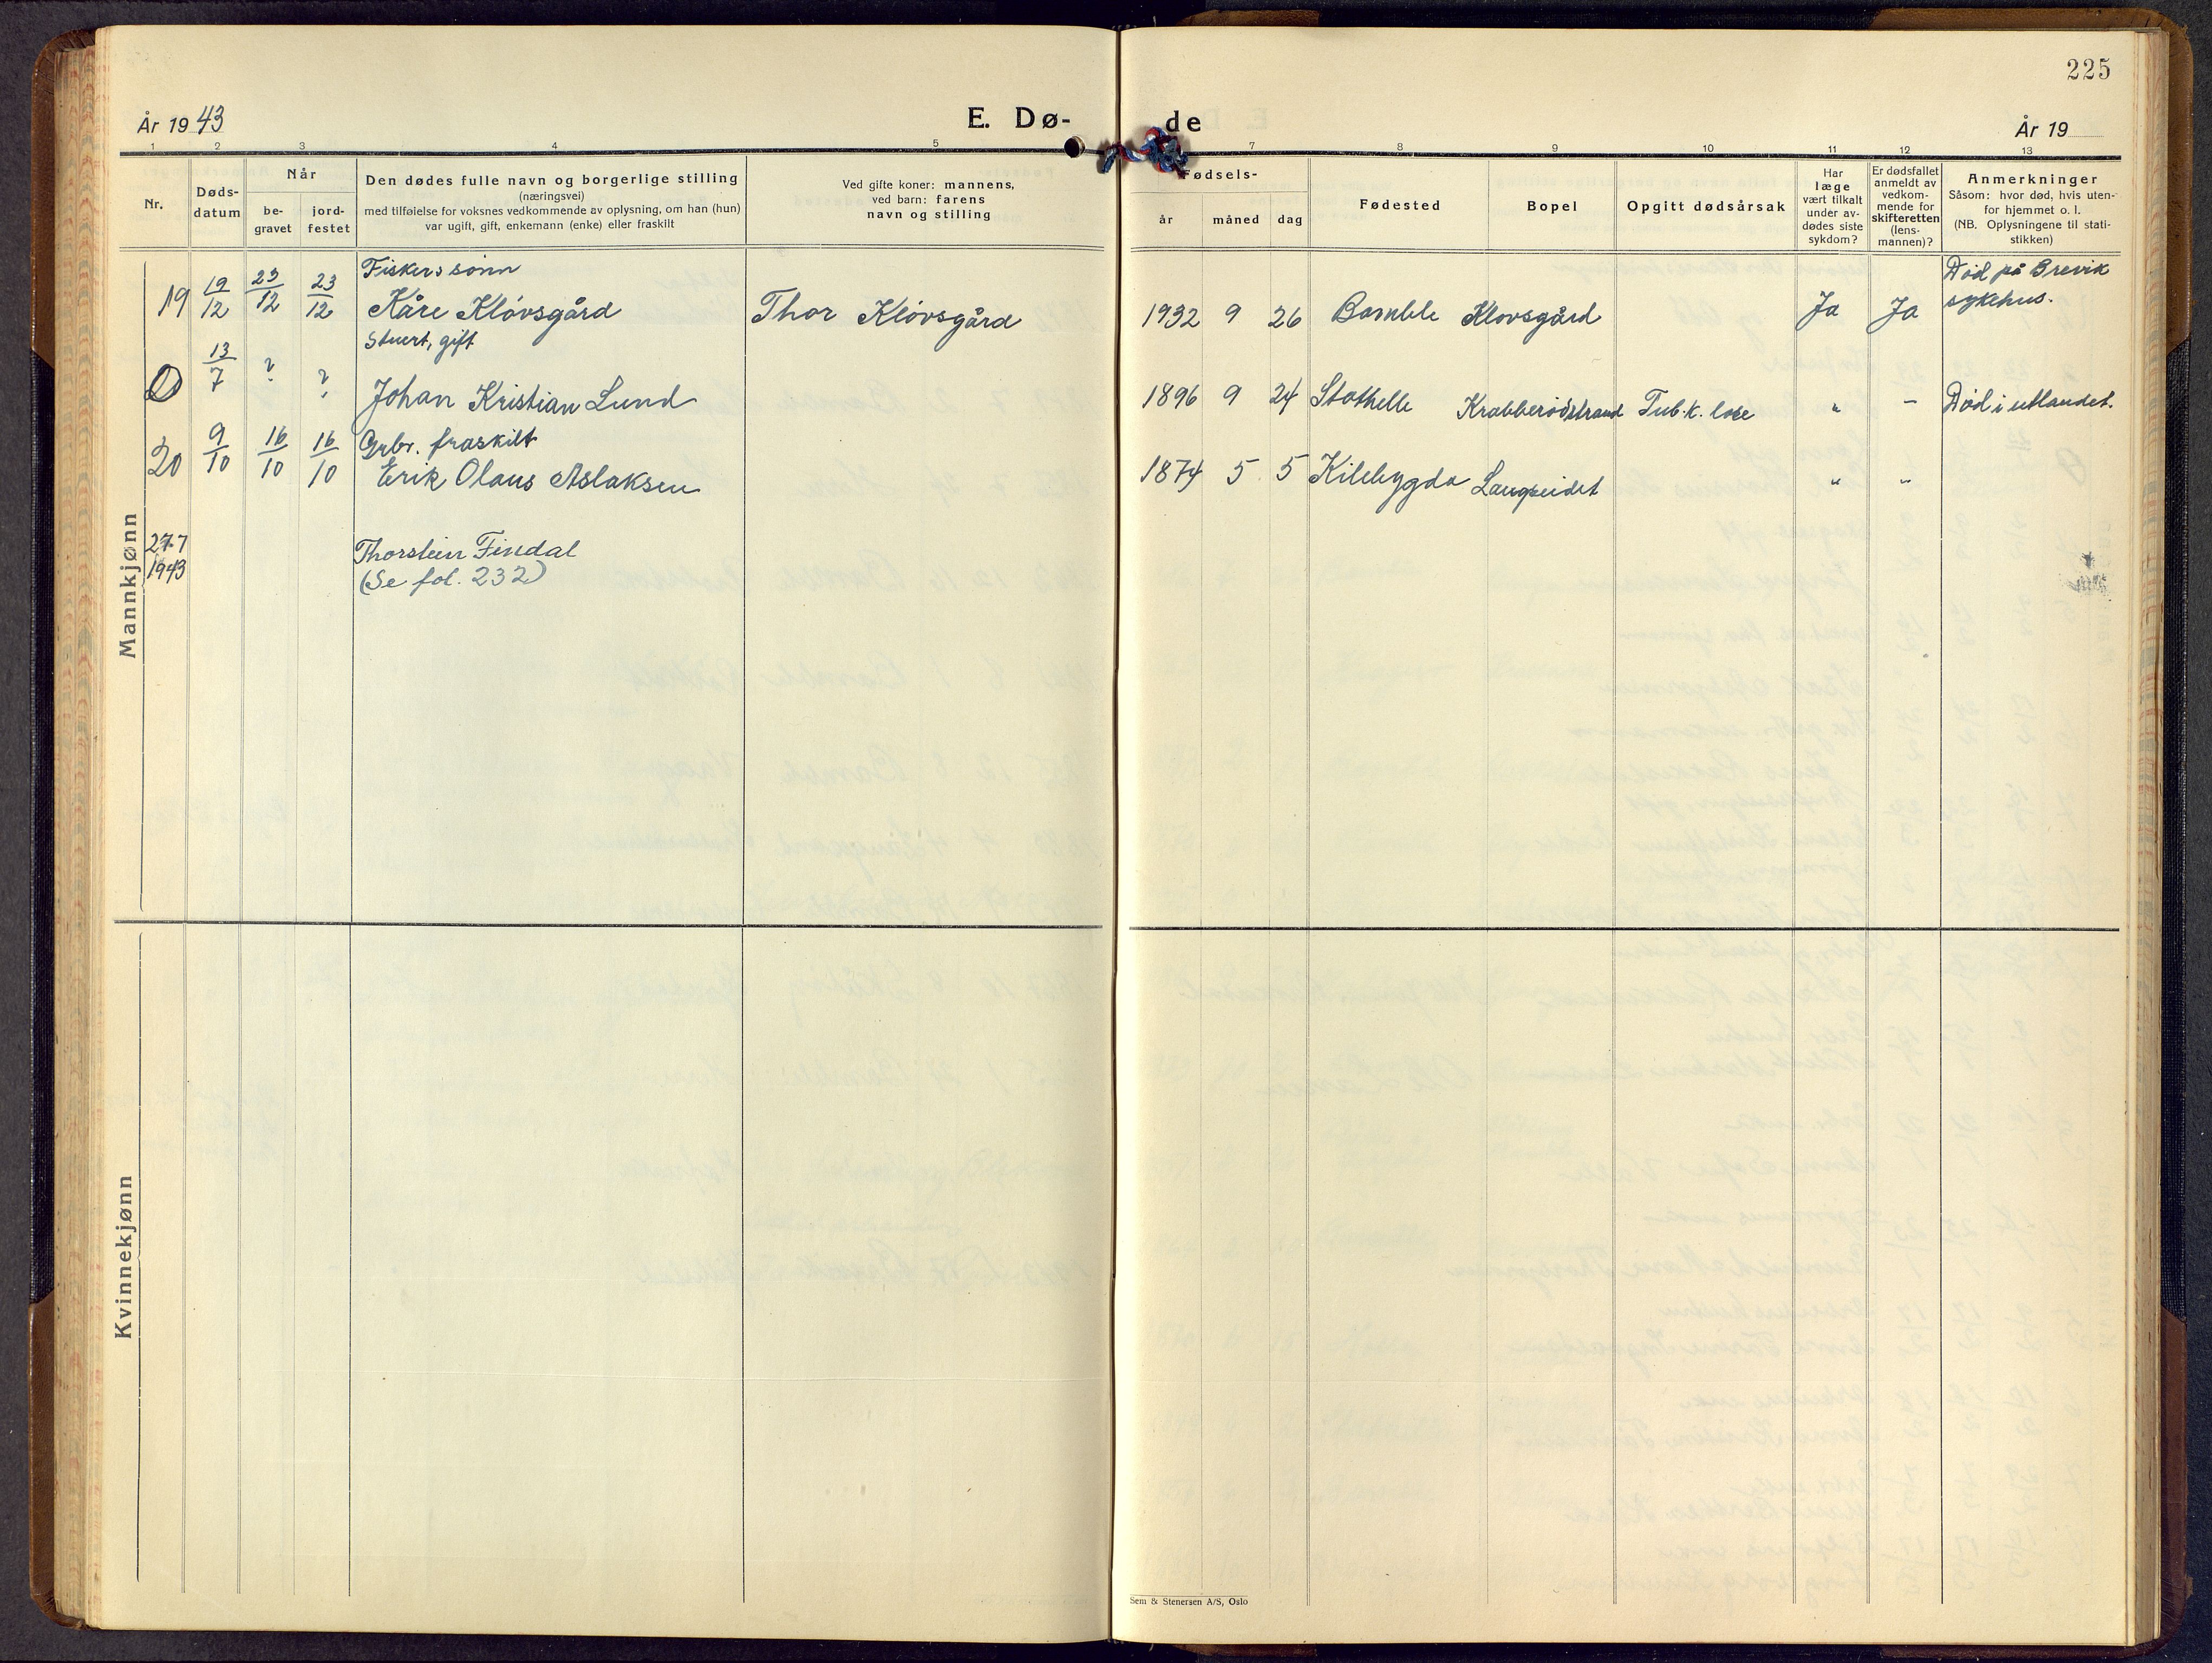 225
År 1943
E. Dø-
de
År 19
1 2 3 4 5 7 8 9 10 11 12 13
Nr.
Døds-
datum
Når
be-
gravet
jord-
festet
Den dødes fulle navn og borgerlige stilling
(næringsvei)
med tilføielse for voksnes vedkommende av oplysning, om han (hun)
var ugift, gift, enkemann (enke) eller fraskilt
Ved gifte koner: mannens,
ved barn: farens
navn og stilling
Fødsels-
år måned dag
Fødested
Bopel
Opgitt dødsårsak
Har
læge
vært tilkalt
under av-
dødes siste
sykdom?
Er dødsfallet
anmeldt av
vedkom-
mende for
skifteretten
(lens-
mannen)?
Anmerkninger
Såsom: hvor død, hvis uten-
for hjemmet o. l.
(NB. Oplysningene til stati-
stikken)
Mannkjønn
Fiskers sønn
19 19/12 23/12 23/12 Kåre Kløvsgård Thor Kløvsgård 1932 9 26 Bamble Klovsgård Ja Ja Død på Brevik
sykehus.
Stuert, gift
0 13/7 ? ? Johan Kristian Lund 1896 9 24 Stathelle Krabberødstrand Tub.k. lose " – Død i utlandet.
Grbr. fraskilt
20 9/10 16/10 16/10 Erik Olaus Aslaksen 1874 5 5 Kilebygda Langseidet " "
27-7
1943
Thorstein Findal
(Se fol. 232)
Kvinnekjønn
Sem & Stenersen A/S, Oslo